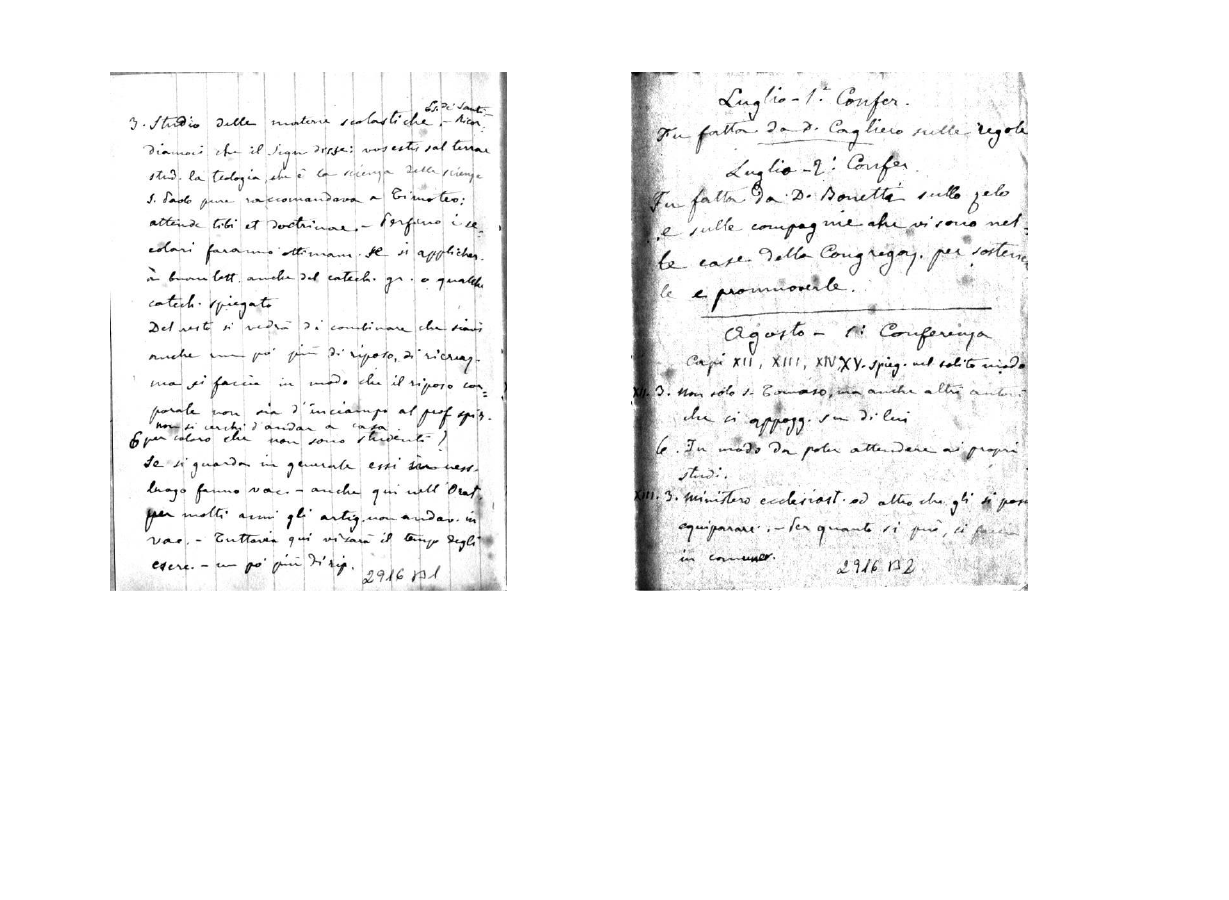 Es. di Santi
3. Studio delle materie scolastiche. - Ricor-
diamoci che il Sign disse: vos estis sal terrae
stud. la teologia, che è la scienza delle scienze
S. Paolo pure raccomandava a Timoteo:
attende tibi et doctrinae. - Perfino i se-
colari faranno ottimam. se si applicher.
a buon lett. anche del catech. gr. o qualche
catech. spiegato
Del resto si vedrà di combinare che siavi
anche un po' più di riposo, di ricreaz.
ma si faccia in modo che il riposo cor-
porale non sia d'inciampo al prof spir.
non si cerchi d'andar a casa
6 per coloro che non sono studenti?
Se si guarda in generale essi in ness.
luogo fanno vac. - anche qui nell'Orat.
per molti anni gli artig. non andav. in
vac. - Tuttavia qui vi sarà il tempo degli
eserc. - un po' più di rip.
2916 B1
Luglio - 1ª Confer.
Fu fatta da D. Cagliero sulle regole
Luglio - 2ª Confer.
Fu fatta da D. Bonetti sullo zelo
e sulle compagnie che vi sono nel-
le case della Congregaz. per sostener
le e promuoverle.
Agosto - 1ª Conferenza
Capi XII, XIII, XIV XV. spieg. nel solito modo
XII. 3. Non solo S. Tomaso, ma anche altri autori
che si appogg. su di lui
6. In modo da poter attendere ai propri
studi.
XIII. 3. Ministero ecclesiast. od altro che gli si possa
equiparare. - Per quanto si può, si faccia
in comune.
2916 B2